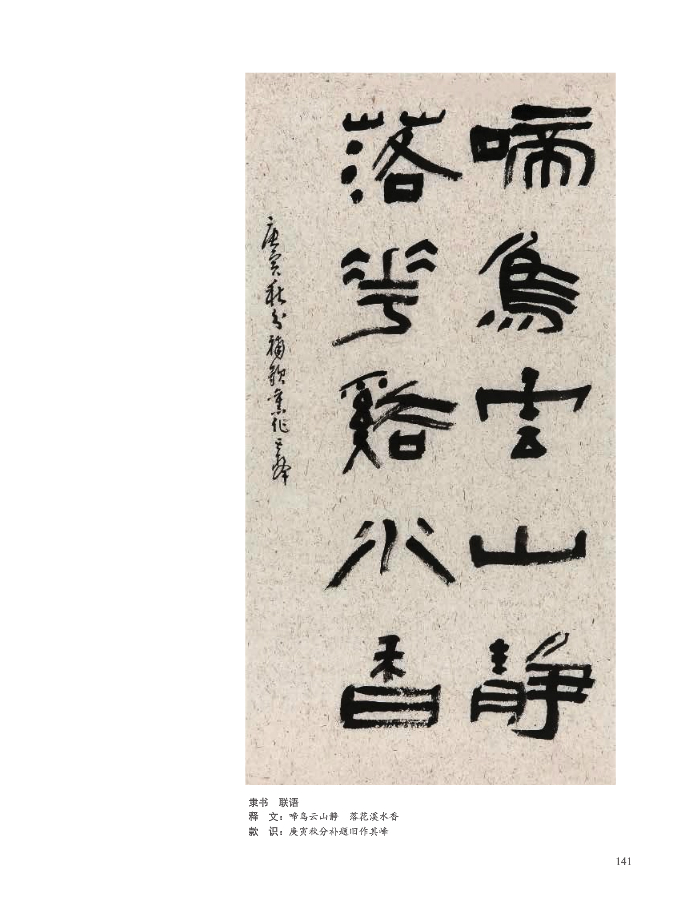 啼鳥雲山靜
落花谿水香
庚寅秋分補款旧作其峰
隶书 联语
释 文：啼鸟云山静 落花溪水香
款 识：庚寅秋分补题旧作其峰
141